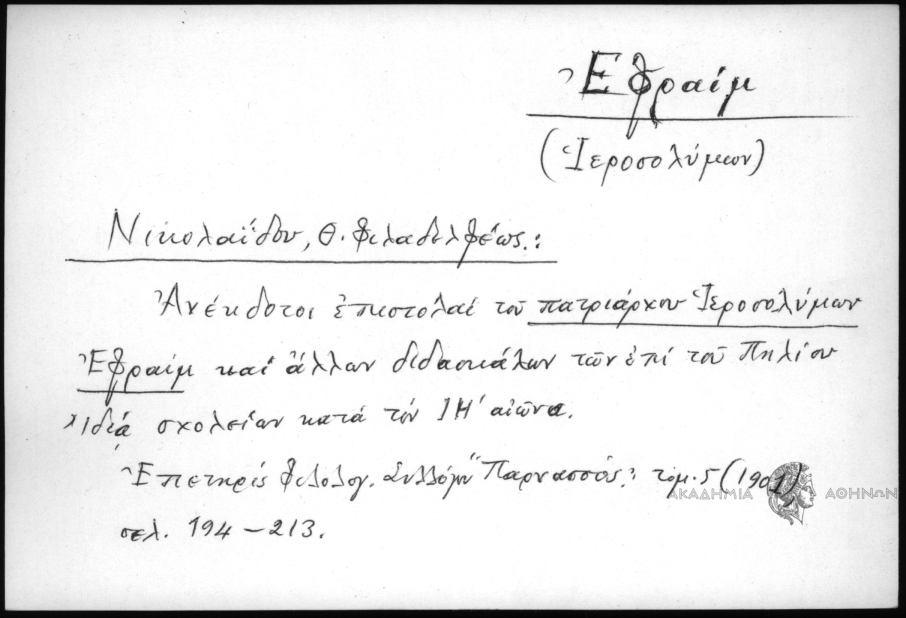 Ἐφραίμ
(Ἱεροσολύμων)
Νικολαΐδου, Θ. Φιλαδελφέως.:
Ἀνέκδοτοι ἐπιστολαί τοῦ πατριάρχου Ἱεροσολύμων
Ἐφραίμ καί ἄλλων διδασκάλων τῶν ἐπί τοῦ Πηλίου
σχολείων κατά τόν ΙΗ' αἰῶνα.
Ἐπετηρίς Φιλολογ. Συλλόγου "Παρνασσός": τόμ. 5 (1901)
σελ. 194 – 213.
ΑΚΑΔΗΜΙΑ ΑΘΗΝΩΝ